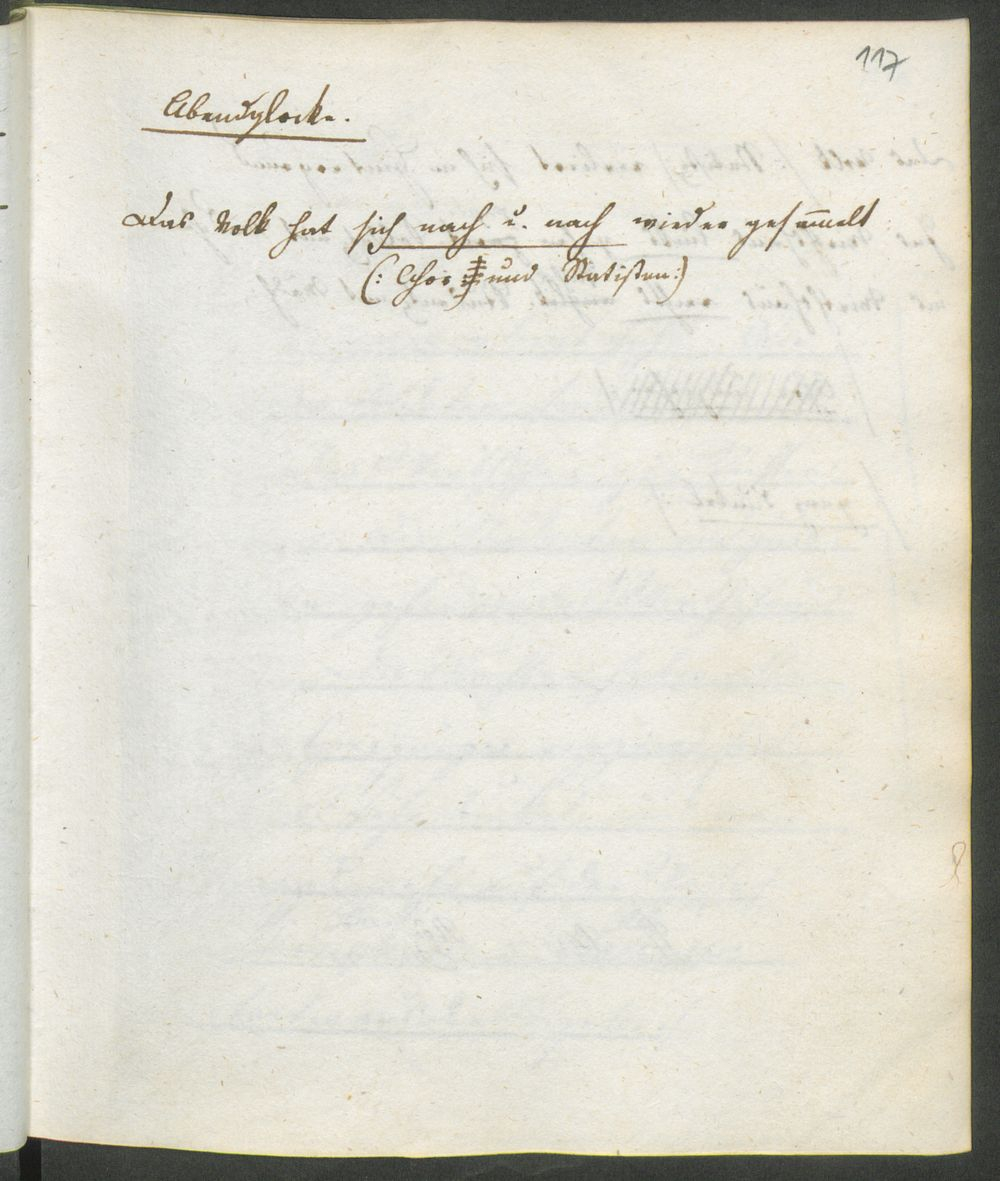 117
Abendglocke.
Das Volk hat sich nach u. nach wieder gesam̅elt
(: Chor und Statisten :)